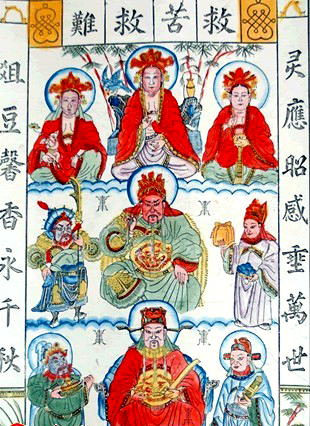 救苦救難
灵應昭感垂萬世
俎豆馨香永千秋